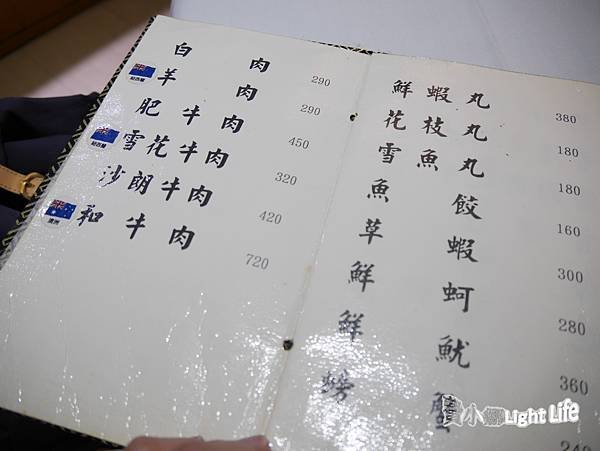 白肉 290
紐西蘭 羊肉 290
肥牛肉 450
紐西蘭 雪花牛肉 320
沙朗牛肉 420
澳洲 和牛肉 720
鮮蝦丸 380
花枝丸 180
雪魚丸 180
魚餃 160
草蝦 300
鮮蚵 280
鮮魷 360
螃蟹
Light Life